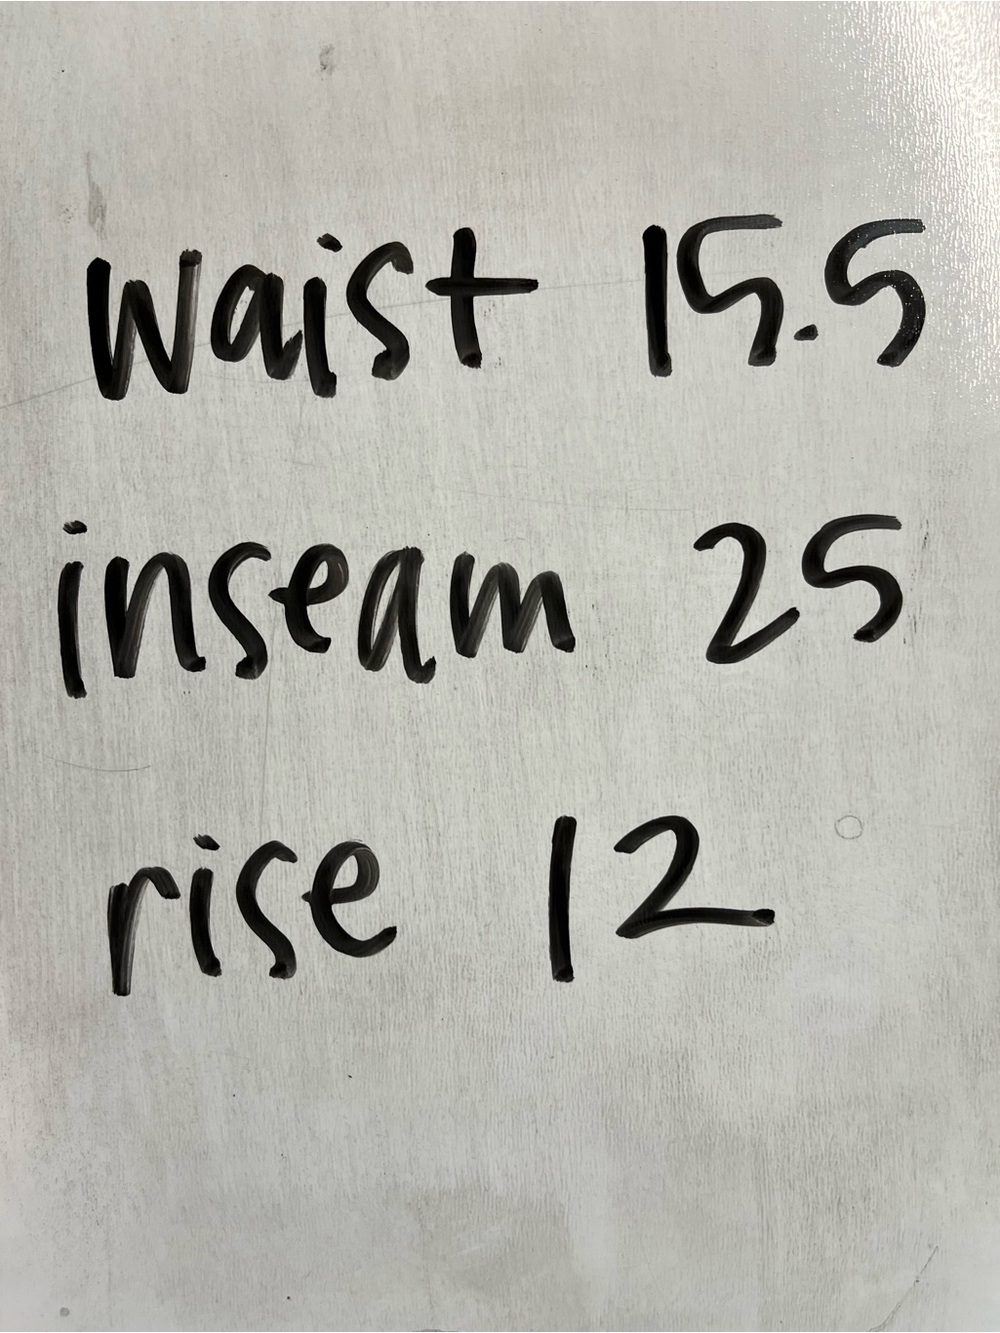 waist 15.5
inseam 25
rise 12